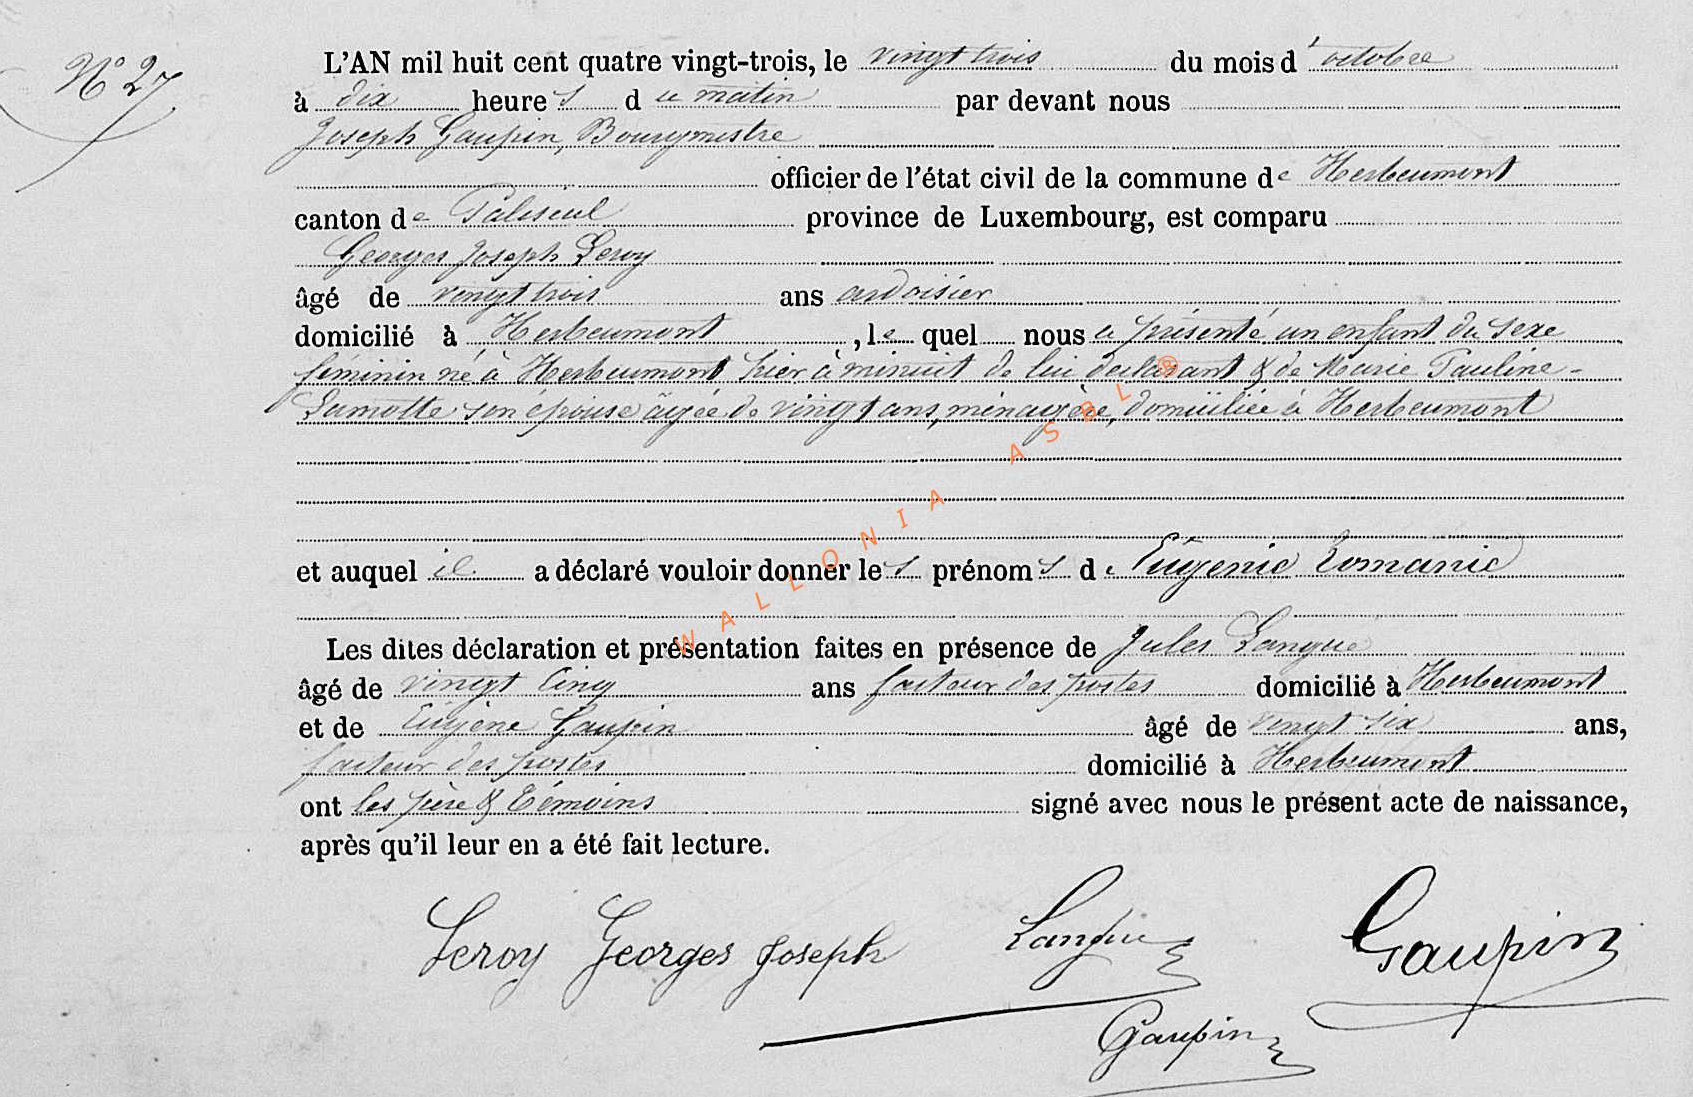 N° 27
L'AN mil huit cent quatre vingt-trois, le vingt trois du mois d'octobre
à dix heures du matin par devant nous
Joseph Gaupin, Bourgmestre
officier de l'état civil de la commune de Herbeumont
canton de Paliseul province de Luxembourg, est comparu
Georges Joseph Leroy
âgé de vingt trois ans ardoisier
domicilié à Herbeumont, lequel nous a présenté un enfant du sexe
féminin né à Herbeumont hier à minuit de lui déclarant & de Marie Pauline
Lamotte son épouse âgée de vingt ans, ménagère, domiciliée à Herbeumont
et auquel il a déclaré vouloir donner les prénoms de Eugénie Romanie
Les dites déclaration et présentation faites en présence de Jules Langue
âgé de vingt cinq ans facteur des postes domicilié à Herbeumont
et de Eugène Gaupin âgé de vingt six ans,
facteur des postes domicilié à Herbeumont
ont les père & témoins signé avec nous le présent acte de naissance,
après qu'il leur en a été fait lecture.
Leroy Georges Joseph Langue Gaupin
Gaupin
WALLONIA ASBL ®